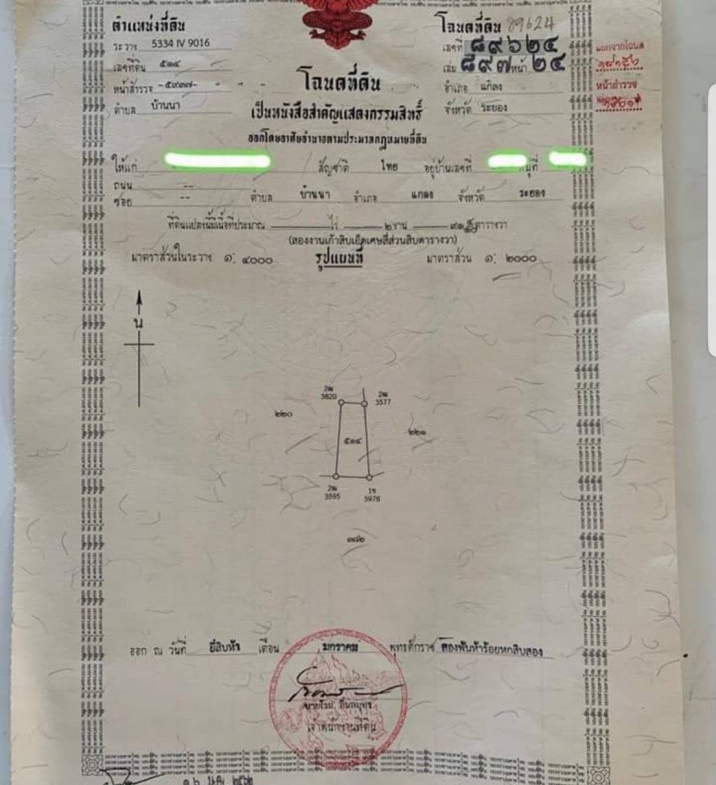 ตำแหน่งที่ดิน
ระวาง 5334 IV 9016
เลขที่ดิน ๕๑๔
หน้าสำรวจ
ตำบล บ้านนา
โฉนดที่ดิน 89624
เลขที่ ๘๙๖๒๔
เล่ม ๘๙๗ หน้า ๒๔
อำเภอ แกลง
จังหวัด ระยอง
แยกจากโฉนด
หน้าสำรวจ
โฉนดที่ดิน
เป็นหนังสือสำคัญแสดงกรรมสิทธิ์
ออกโดยอาศัยอำนาจตามประมวลกฎหมายที่ดิน
ให้แก่ สัญชาติ ไทย อยู่บ้านเลขที่ หมู่ที่
ถนน --
ซอย -- ตำบล บ้านนา อำเภอ แกลง จังหวัด ระยอง
ที่ดินแปลงนี้มีเนื้อที่ประมาณ ไร่ ๒ งาน ตารางวา
(สองงานเก้าสิบเอ็ดเศษสี่ส่วนสิบตารางวา)
มาตราส่วนในระวาง ๑: ๔๐๐๐ รูปแผนที่ มาตราส่วน ๑: ๒๐๐๐
น
2ฒ 3820
2ฒ 3577
๒๒๐
๕๑๔
๒๒๑
2ฒ 3595
1ข 5976
๓๘๒
ออก ณ วันที่ ยี่สิบห้า เดือน มกราคม พุทธศักราช สองพันห้าร้อยหกสิบสอง
เจ้าพนักงานที่ดิน